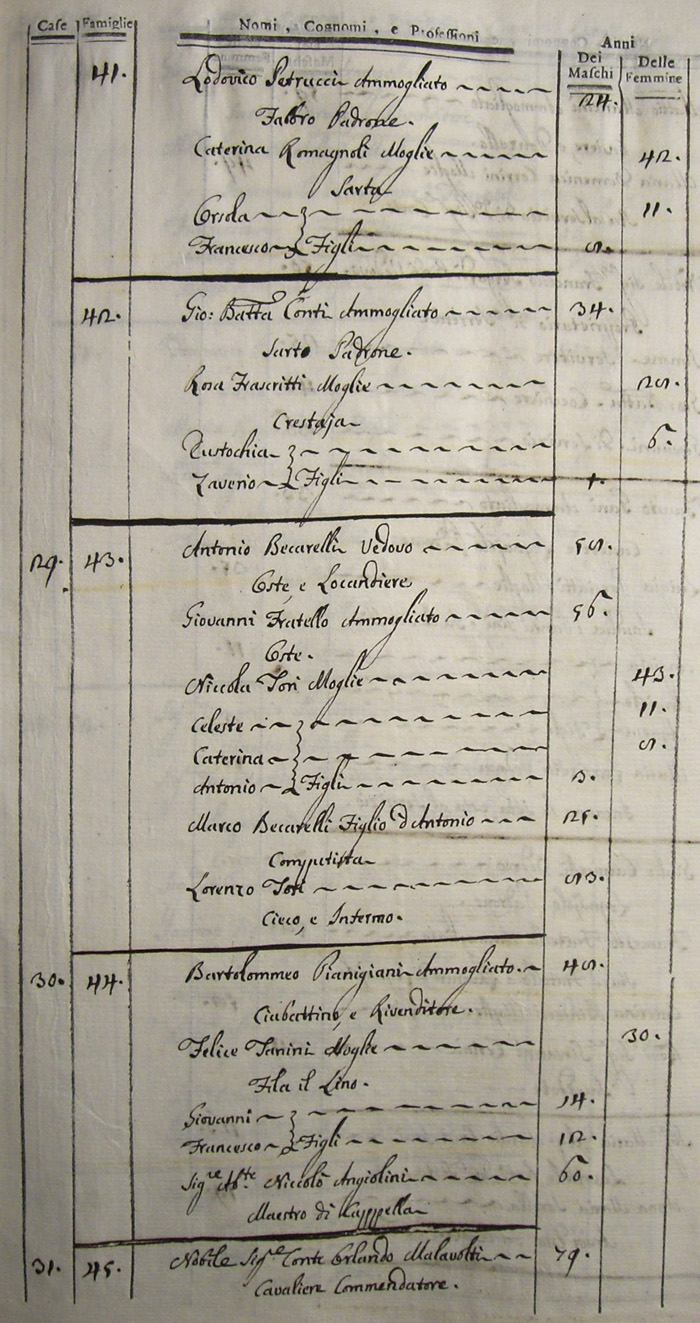 Case Famiglie Nomi, Cognomi, e Professioni Anni
Dei Maschi Delle Femmine
41. Lodovico Petrucci Ammogliato 24.
Fabbro Padrone.
Caterina Romagnoli Moglie 42.
Sarta
Orsola 11.
Francesco Figli 8.
42. Gio: Batta Conti Ammogliato 34.
Sarto Padrone.
Rosa Frascritti Moglie 28.
Crestaja
Eustochia 6.
Zaverio Figli 1.
29. 43. Antonio Becarelli Vedovo 58.
Oste, e Locandiere
Giovanni Fratello Ammogliato 56.
Oste.
Niccola Tori Moglie 43.
Celeste 11.
Caterina 8.
Antonio Figli 3.
Marco Becarelli Figlio d'Antonio 25.
Computista
Lorenzo Tori 83.
Cieco, e Infermo.
30. 44. Bartolommeo Pianigiani Ammogliato. 48.
Ciabattino, e Rivenditore.
Felice Tanini Moglie 30.
Fila il Lino.
Giovanni 14.
Francesco Figli 12.
Sigre Abte. Niccolò Angiolini 60.
Maestro di Cappella
31. 45. Nobile Sigre Conte Orlando Malavolti 79.
Cavaliere Commendatore.